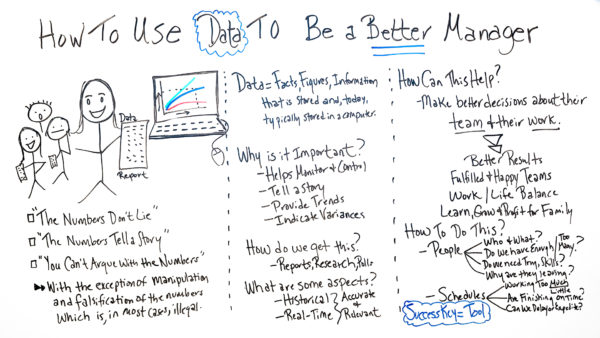 How To Use Data To Be a Better Manager
Data
Report
"The Numbers Don't Lie"
"The Numbers Tell a Story"
"You Can't Argue With the Numbers"
With the exception of manipulation
and falsification of the numbers
which is, in most cases, illegal.
Data = Facts, Figures, Information
that is stored and, today,
typically stored in a computer.
Why is it Important?
- Helps Monitor & Control
- Tell a Story
- Provide Trends
- Indicate Variances
How do we get this?
- Reports, Research, Polls
What are some aspects?
- Historical
- Real-Time
Accurate
&
Relevant
How Can This Help?
- Make better decisions about their
team & their work.
Better Results
Fulfilled & Happy Teams
Work / Life Balance
Learn, Grow & Profit for Family
How To Do This?
- People
Who & What?
Do we Have Enough / Too Many?
Do we Need Trng, Skills?
Why are they leaving?
- Schedules
Working Too Much
Little
Are Finishing on Time?
Can We Delay or Expedite?
Success Key = Tool